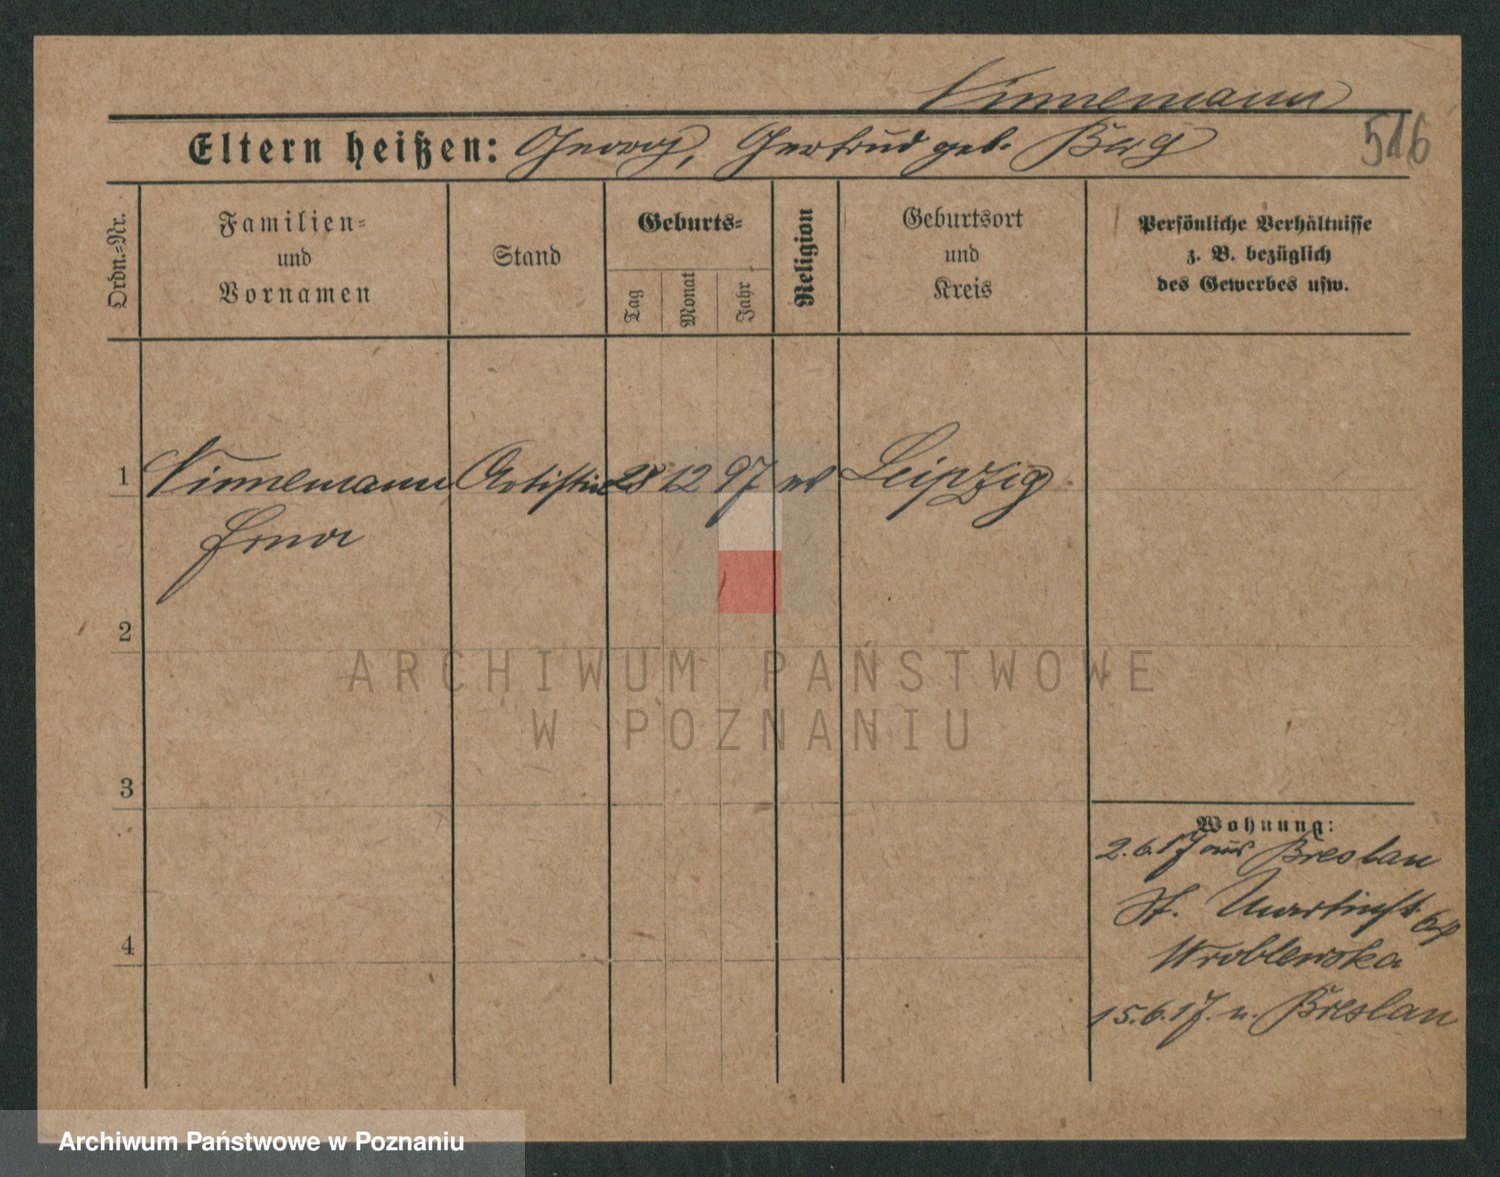 Linnemann
Eltern heißen: Georg, Gertrud geb. Berg
516
Ordn.-Nr.
Familien-
und
Vornamen
Stand
Geburts-
Tag
Monat
Jahr
Religion
Geburtsort
und
Kreis
Persönliche Verhältnisse
z. B. bezüglich
des Gewerbes usw.
1 Linnemann Artistin 28 12 97 ev Leipzig
Erna
2
ARCHIWUM PAŃSTWOWE
W POZNANIU
3
Wohnung:
2.6.17 aus Breslau
St. Martinstr.
4
Wroblewska
15.6.17. n. Breslau
Archiwum Państwowe w Poznaniu